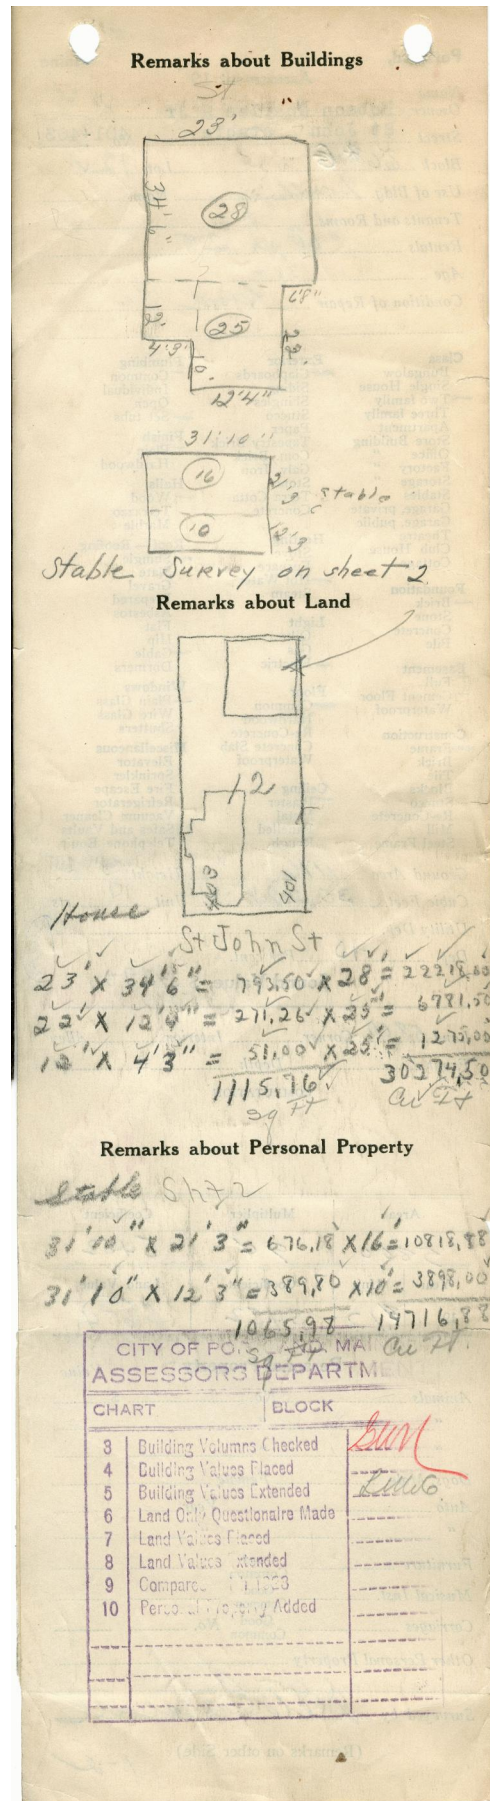 Remarks about Buildings
St
23'
34'6"
28
6'8"
12'
25
22'
4'3"
10'
12'4"
31'10"
16
21'3
Stable
10
12'3
Stable Survey on sheet 2
Remarks about Land
12
403
401
House
St John St
23' X 34'6" = 793.50 X 28' = 22218.00
22' X 12'4" = 271.26 X 25' = 6781.50
12' X 4'3" = 51.00 X 25' = 1275.00
1115.76 30274.50
Sq Ft Cu Ft
Remarks about Personal Property
Stable Sht 2
31'10" X 21'3" = 676.18 X 16' = 10818.88
31'10" X 12'3" = 389.80 X 10' = 3898.00
1065.98 14716.88
Sq Ft Cu Ft.
CITY OF
ASSESSORS DEPARTMENT
CHART BLOCK
3 Building Volumns Checked
4 Building Values Placed
5 Building Values Extended
6 Land Only Questionaire Made
7 Land Values Placed
8 Land Values Extended
9
10 Personal Property Added
(Remarks on other Side)